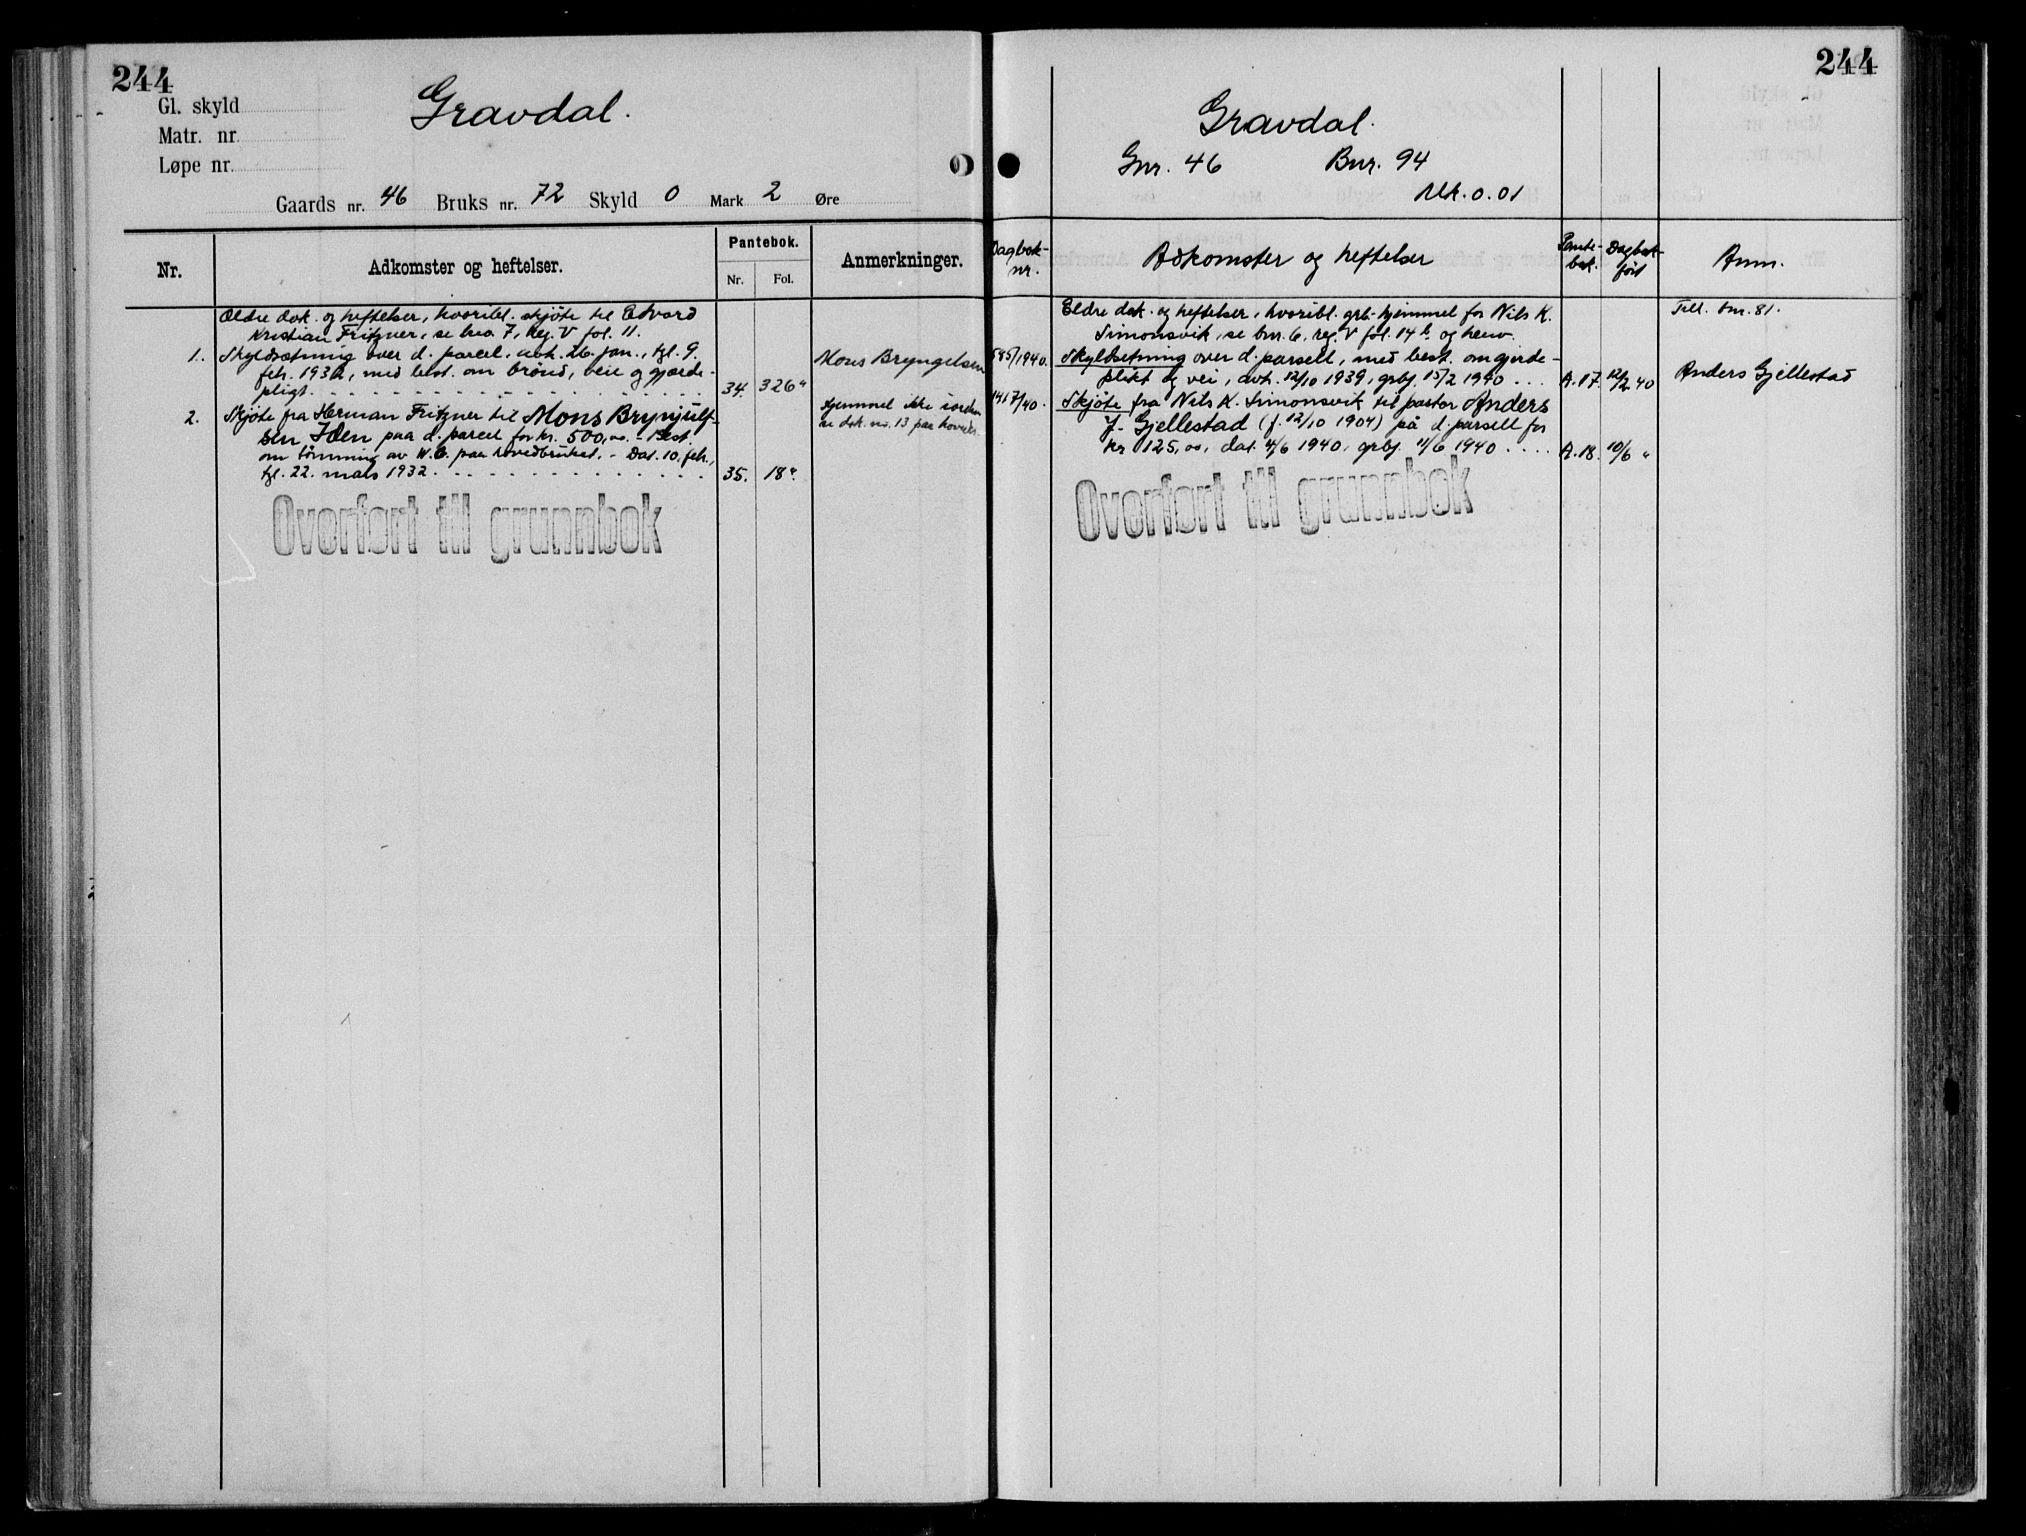 244
Gl. skyld
Matr. nr.
Løpe nr.
Gravdal.
Gaards nr. 46 Bruks nr. 72 Skyld 0 Mark 2 Øre
Nr.
Adkomster og heftelser.
Pantebok.
Nr.
Fol.
Anmerkninger.
Ældre dok. og heftelser, hvoribl. skjöte til Edvard
Kristian Fritzner, se bno. 7, reg. V fol. 11.
1. Skyldsætning over d. parcel, avh. 26. jan., tgl. 9.
febr. 1932, med best. om brönd, veie og gjærde-
pligt. 34. 326 "
Mons Bryngelsen
2. Skjöte fra Herman Fritzner til Mons Brynjulf-
sen Iden paa d. parcel for kr. 500,00. - Best.
om tömming av W.C. paa hovedbruket. - Dat. 10. febr.,
tgl. 22. mars 1932. 35. 18 "
Hjemmel ikke i orden
se dok. no. 13 paa hovedbr.
Overført til grunnbok
244
Gravdal.
Gnr. 46 Bnr. 94
Mk. 0.01
Dagbok-
nr.
Adkomster og heftelser
Pante-
bok.
Dagbok-
ført
Anm.
Eldre dok. og heftelser, hvoribl. grb. hjemmel for Nils K.
Simonsvik, se bnr. 6, reg. V fol. 14 b og henv.
Till. bnr. 81.
585/1940. Skyldsetning over d. parsell, med best. om gjerde-
plikt og vei, avh. 12/10 1939, grbf. 15/2 1940 . . . A. 17. 12/2 40
Anders Gjellestad
1417/40. Skjöte fra Nils K. Simonsvik til pastor Anders
J. Gjellestad (f. 12/10 1904) på d. parsell for
kr 125,00, dat. 4/6 1940, grbf. 11/6 1940 . . . . A. 18. 10/6 "
Overført til grunnbok